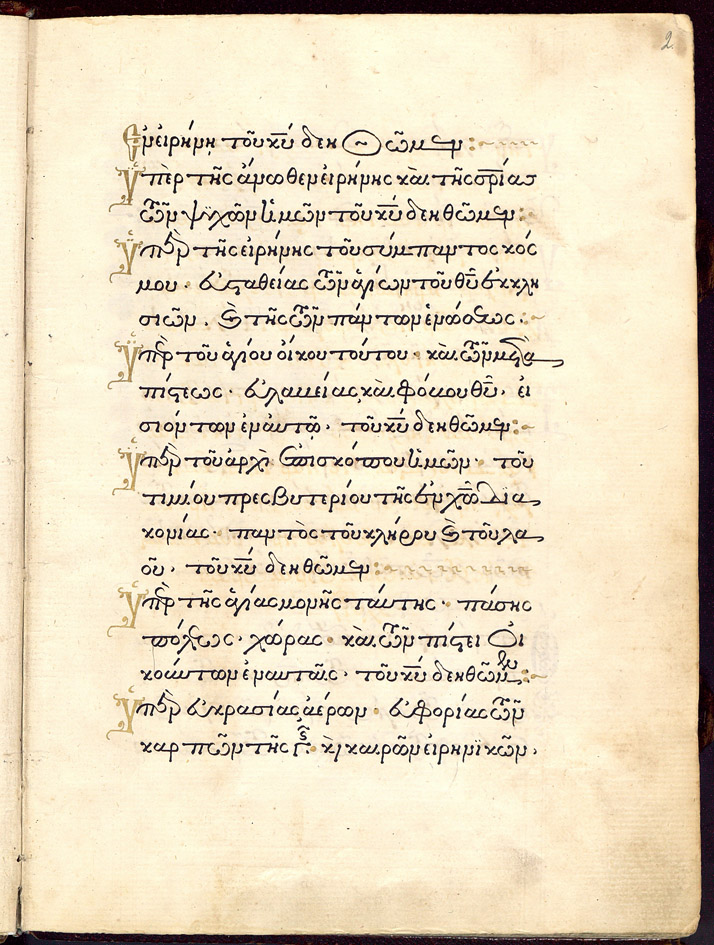 2
Ἐν εἰρήνῃ τοῦ κῡ δεηθῶμεν:
Ὑπὲρ τῆς ἄνωθεν εἰρήνης καὶ τῆς σρ̅ίας
τῶν ψυχῶν ἡμῶν τοῦ κῡ δεηθῶμεν:
Ὑπὲρ τῆς εἰρήνης τοῦ σύμπαντος κόσ
μου· εὐσταθείας τῶν ἁγίων τοῦ θῡ ἐκκλη
σιῶν. καὶ τῆς τῶν πάντων ἑνώσεως.:
Ὑπὲρ τοῦ ἁγίου οἴκου τούτου· καὶ τῶν μετὰ
πίστεως· εὐλαβείας καὶ φόβου θῡ· εἰ
σιόντων ἐν αὐτῷ· τοῦ κῡ δεηθῶμεν:
Ὑπὲρ τοῦ ἀρχιεπισκόπου ἡμῶν· τοῦ
τιμίου πρεσβυτερίου τῆς ἐν χῶ δια
κονίας· παντὸς τοῦ κλήρου καὶ τοῦ λα
οῦ· τοῦ κῡ δεηθῶμεν:
Ὑπὲρ τῆς ἁγίας μονῆς ταύτης· πάσης
πόλεως· χώρας· καὶ τῶν πίστει οἰ
κούντων ἐν αὐταῖς· τοῦ κῡ δεηθῶμεν:
Ὑπὲρ εὐκρασίας ἀέρων· εὐφορίας τῶν
καρπῶν τῆς γῆς· κ̀ καιρῶν εἰρηνικῶν·